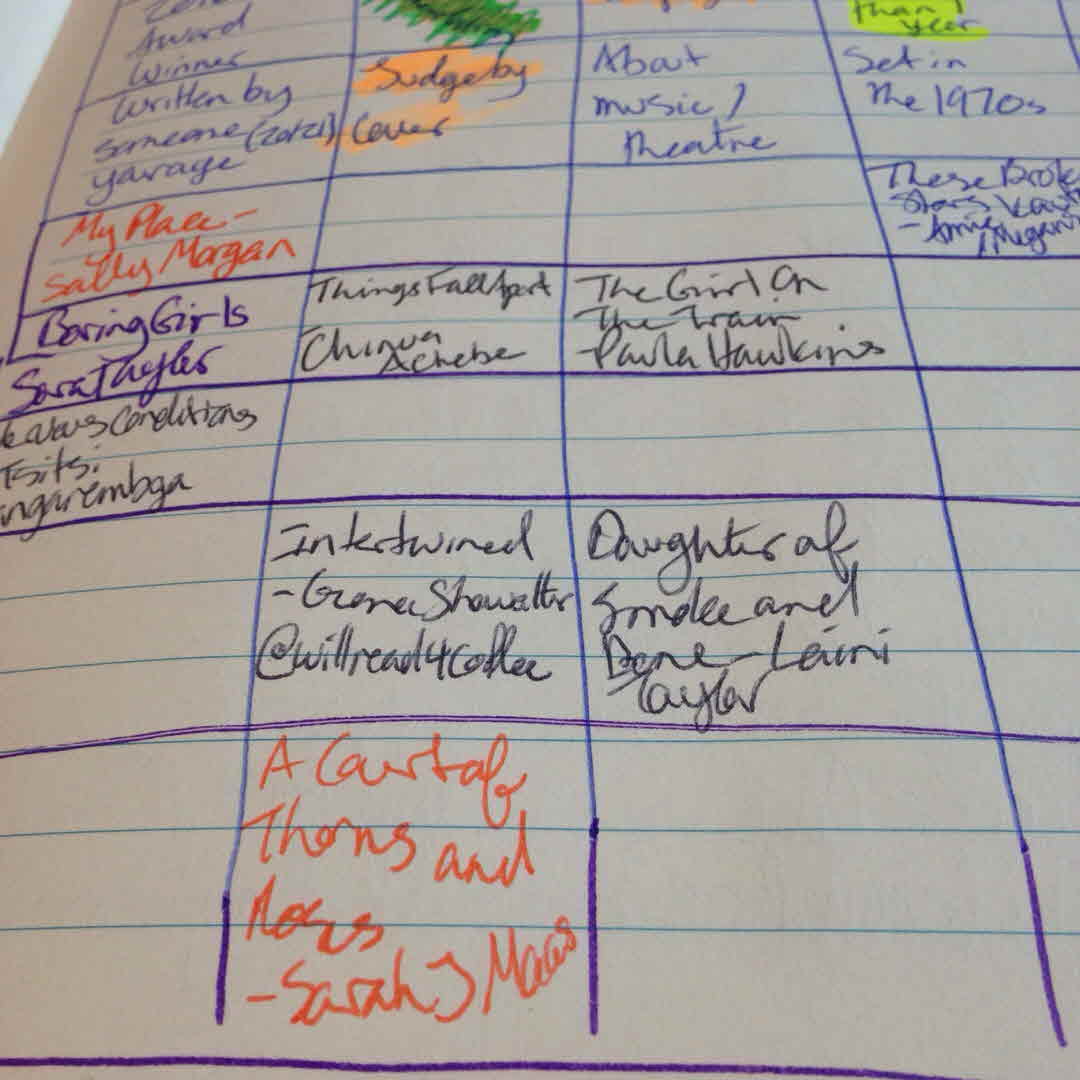 Award
Winner
than 1
year
Written by
someone (20/21)
garage
Judge by
Cover
About
music /
theatre
Set in
the 1970s
My Place -
Sally Morgan
These Broke
Stars Kau
- Amie
Megan
Boring Girls
Sara Taylor
Things Fall Apart
Chinua
Achebe
The Girl On
The Train
- Paula Hawkins
Conditions
Tsitsi
ngarembga
Intertwined
- Gena Showalter
@willread4coffee
Daughter of
Smoke and
Bone - Laini
Taylor
A Court of
Thorns and
Roses
- Sarah J Maas